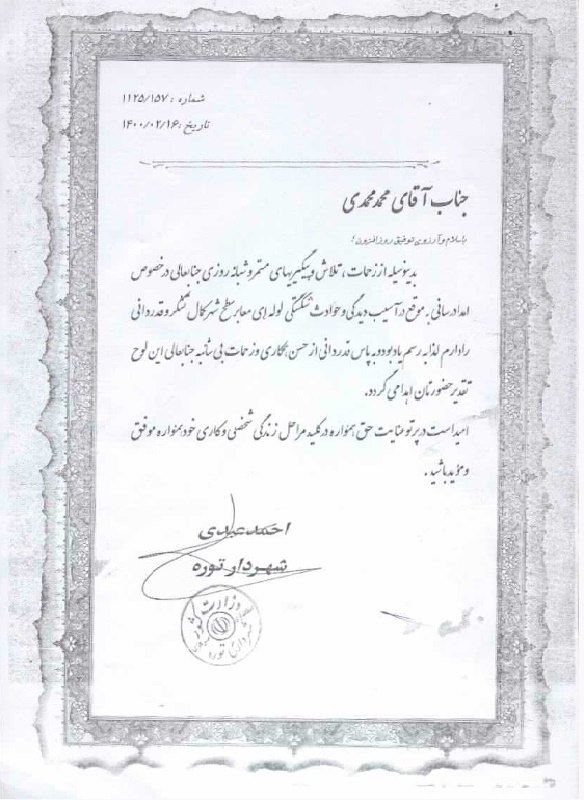 شماره : ۱۱۲۵/۱۵۷
تاریخ : ۱۴۰۰/۰۲/۱۶
جناب آقای محمد محمدی
با سلام و آرزوی توفیق روز افزون ؛
بدینوسیله از زحمات ، تلاش و پیگیریهای مستمر و شبانه روزی جنابعالی در خصوص
امداد رسانی به موقع در آسیب دیدگی و حوادث شکستگی لوله های معابر سطح شهر کمال تشکر و قدردانی
را دارم لذا به رسم یادبود و به پاس قدردانی از حسن همکاری و زحمات بی شائبه جنابعالی این لوح
تقدیر حضورتان اهدا می گردد.
امید است در پرتو عنایت حق همواره در کلیه مراحل زندگی شخصی و کاری خود همواره موفق
و مؤید باشید .
احمد عبدی
شهردار توره
وزارت کشور
شهرداری توره